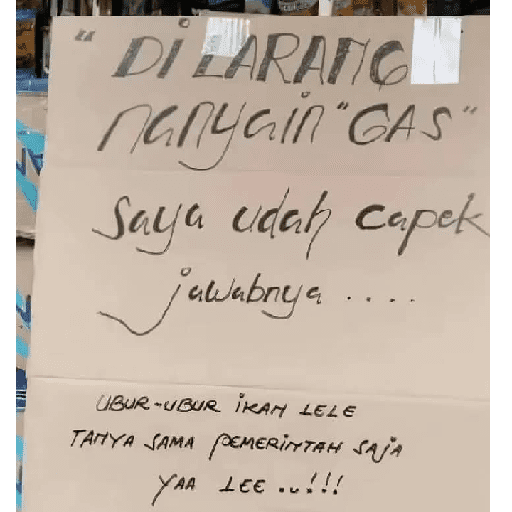 "DiLARANG
nanyain "GAS"
saya udah capek
jawabnya ....
UBUR-UBUR iKAN LELE
TANYA SAMA PEMERINTAH SAJA
YAA LEE ..!!!